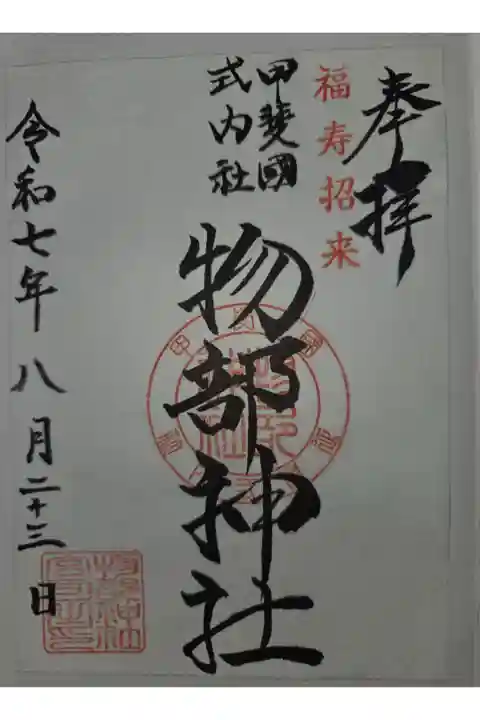 奉拝
福寿招来
甲斐國
式内社
物部神社
令和七年八月二十三日